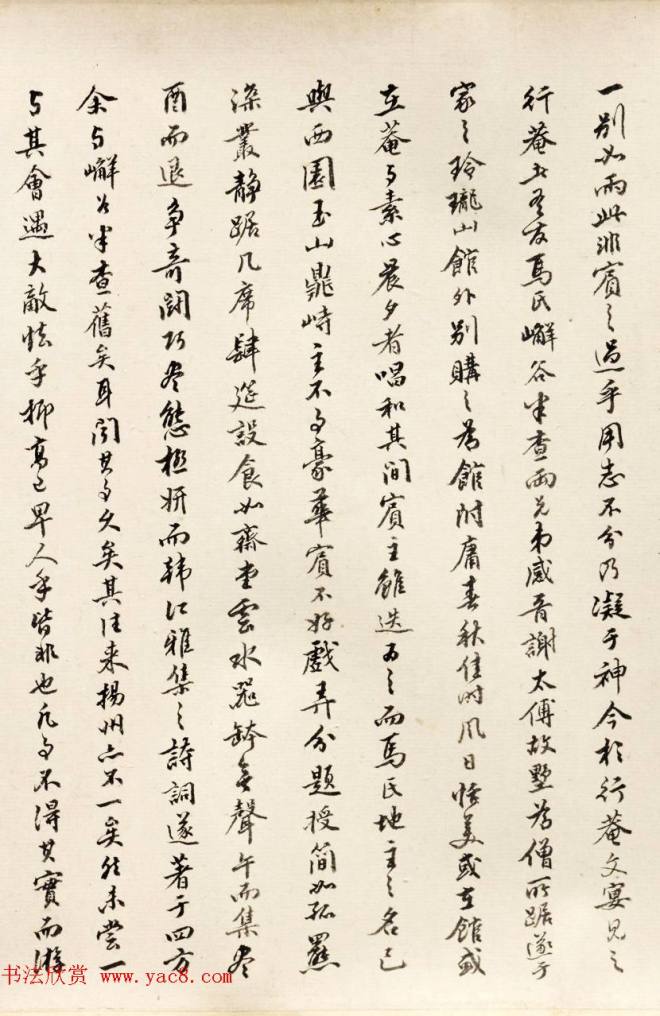 一別如雨此非賓之過乎用志不分乃凝于神今於行菴文宴見之
行菴者吾友馬氏嶰谷半查兩兄弟感晉謝太傅故墅為僧所踞遂于
家之玲瓏山館外別購之為館附庸春秋佳時風日恬美或在館或
在菴與素心晨夕者唱和其間賓主雖迭為之而馬氏地主之名已
與西園玉山鼎峙主不事豪華賓不好戲弄分題授簡如孤羆
深叢靜踞几席肆筵設食如齋堂雲水器鉢無聲午而集盡
酉而退爭奇鬭巧盡態極妍而韓江雅集之詩詞遂著于四方
余與嶰谷半查舊矣耳聞其事久矣其往來揚州亦不一矣然未嘗一
與其會遇大敵怯乎抑高己卑人乎皆非也凡事不得其實而游
书法欣赏 www.yac8.com